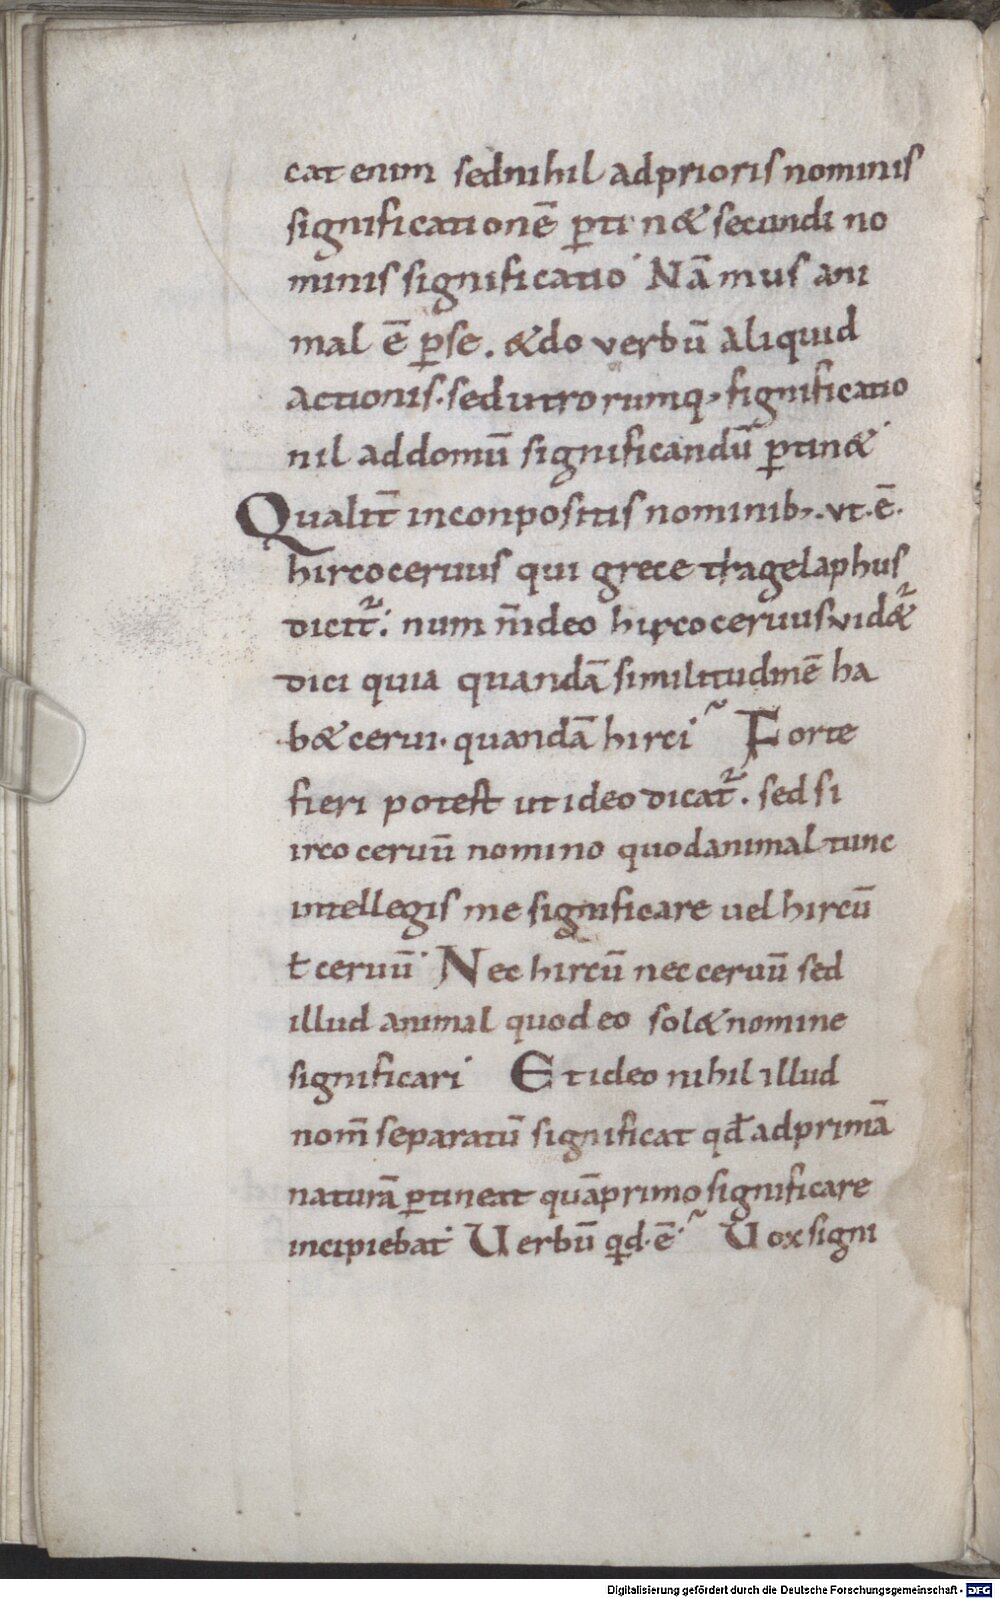 cat enim sed nihil ad prioris nominis
significationē ꝑtinꝫ secundi no
minis significatio. Nā mus ani
mal ē ꝑse. &do verbū aliquid
actionis. sed utrorumq; significatio
nil ad domū significandū ꝑtin&.
Qualit̄ inconpositis nominib; . vt . ē.
hircoceruus qui grece tragelaphus
dicit᷑. num n̄ ideo hircoceruus vid&᷑
dici quia quandā similitudinē ha
b& cerui. quandā hirci~ Forte
fieri potest ut ideo dicat᷑. sed si
ircoceruū nomino quod animal tunc
intellegis me significare uel hircū
ł ceruū. Nec hircū nec ceruū sed
illud animal quod eo sol& nomine
significari. Et ideo nihil illud
nom̄ separatū significat qđ ad primā
naturā ꝑtineat quā primo significare
incipiebat. Uerbū qid . ē.~ Uox signi
Digitalisierung gefördert durch die Deutsche Forschungsgemeinschaft - DFG